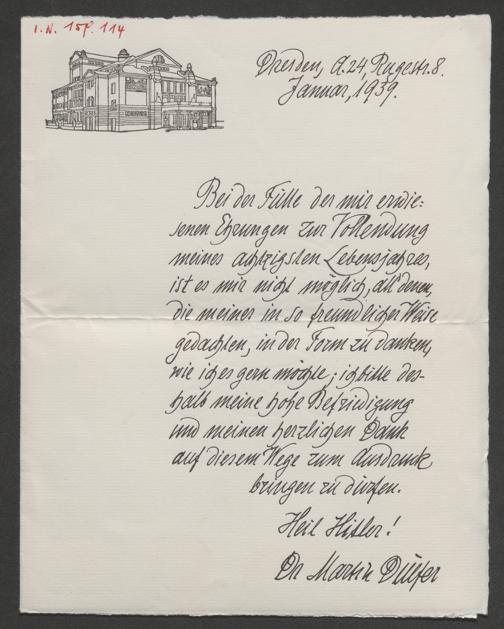 I.N. 157.114
Dresden, A.24, Rugestr.8.
Januar, 1939.
Bei der Fülle der mir erwie=
senen Ehrungen zur Vollendung
meines achtzigsten Lebensjahres,
ist es mir nicht möglich, all' denen,
die meiner in so freundlicher Weise
gedachten, in der Form zu danken,
wie ich es gern möchte; ich bitte des-
halb meine hohe Befriedigung
und meinen herzlichen Dank
auf diesem Wege zum Ausdruck
bringen zu dürfen.
Heil Hitler!
Dr Martin Dülfer